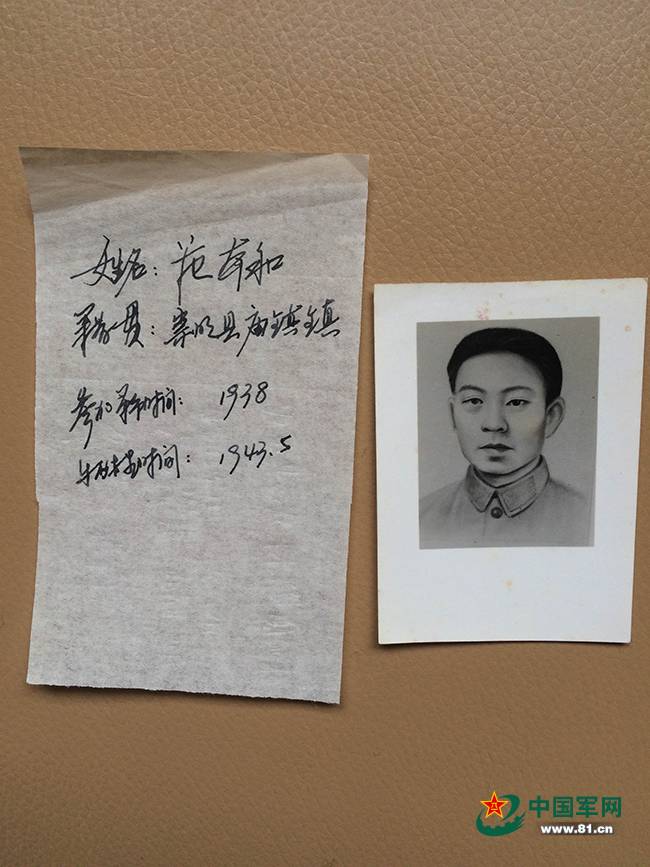 姓名：范 和
籍贯：崇明县庙镇镇
参加革命时间：1938
牺牲时间：1943.5
中国军网
www.81.cn